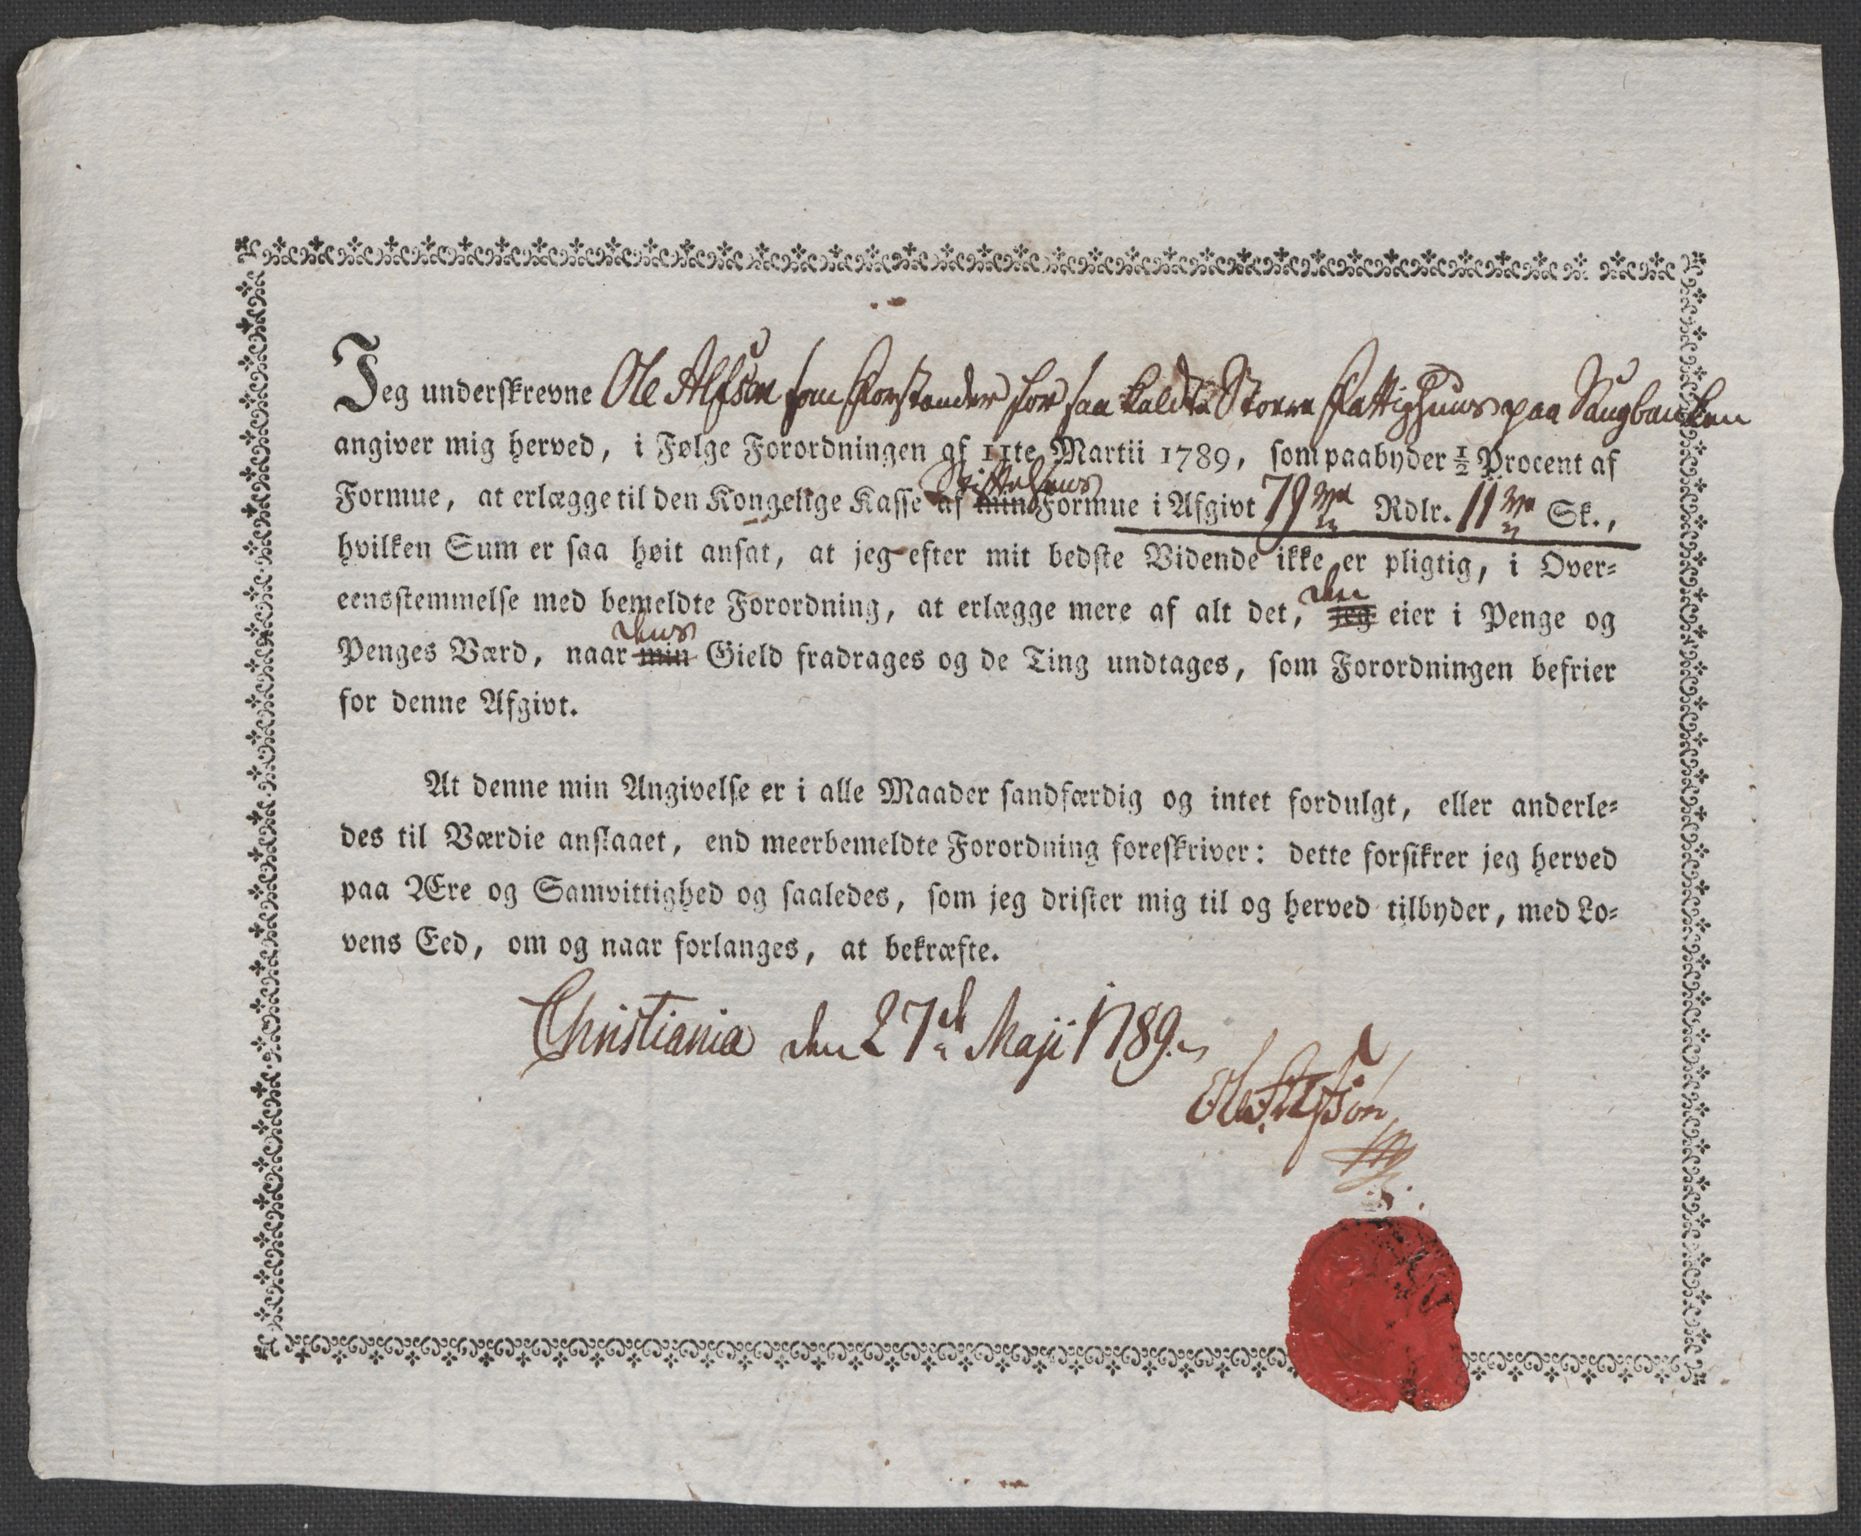 Jeg underskrevne Ole Alfsøn som Forstander for saa kaldte Stoere Fattighuus paa Saugbanken
angiver mig herved, i Følge Forordningen af 11te Martii 1789, som paabyder ½ Procent af
Stiftelsens
Formue, at erlægge til den Kongelige Kasse af min Formue i Afgivt 79 Rdlr. 11 Sk.,
hvilken Sum er saa høit ansat, at jeg efter mit bedste Vidende ikke er pligtig, i Over-
den
eensstemmelse med bemeldte Forordning, at erlægge mere af alt det, jeg eier i Penge og
dens
Penges Værd, naar min Gield fradrages og de Ting undtages, som Forordningen befrier
for denne Afgivt.
At denne min Angivelse er i alle Maader sandfærdig og intet fordulgt, eller anderle-
des til Værdie anslaaet, end meerbemeldte Forordning foreskriver: dette forsikrer jeg herved
paa Ære og Samvittighed og saaledes, som jeg drister mig til og herved tilbyder, med Lo-
vens Eed, om og naar forlanges, at bekræfte.
Christiania den 27de Maji 1789.
Ole Alfsøn